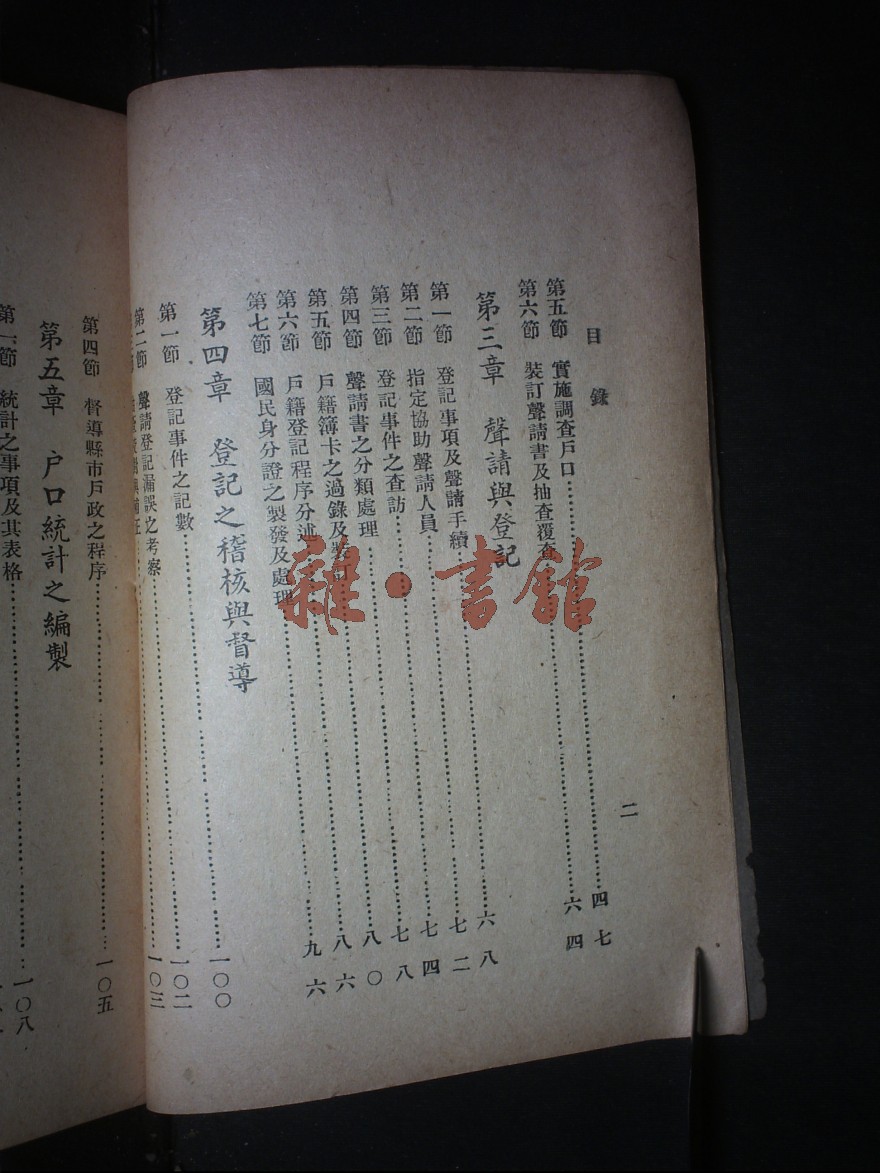 目錄 二
第五節 實施調查戶口…………四七
第六節 裝訂聲請書及抽查覆查…………六四
第三章 聲請與登記
第一節 登記事項及聲請手續…………六八
第二節 指定協助聲請人員…………七二
第三節 登記事件之查訪…………七四
第四節 聲請書之分類處理…………七八
第五節 戶籍簿卡之過錄及裝訂…………八〇
第六節 戶籍登記程序分述…………八六
第七節 國民身分證之製發及處理…………九六
第四章 登記之稽核與督導
第一節 登記事件之記數…………一〇〇
第二節 聲請登記漏誤之考察…………一〇二
…………一〇三
第四節 督導縣市戶政之程序…………一〇五
第五章 戶口統計之編製
第一節 統計之事項及其表格…………一〇八
雜·書館